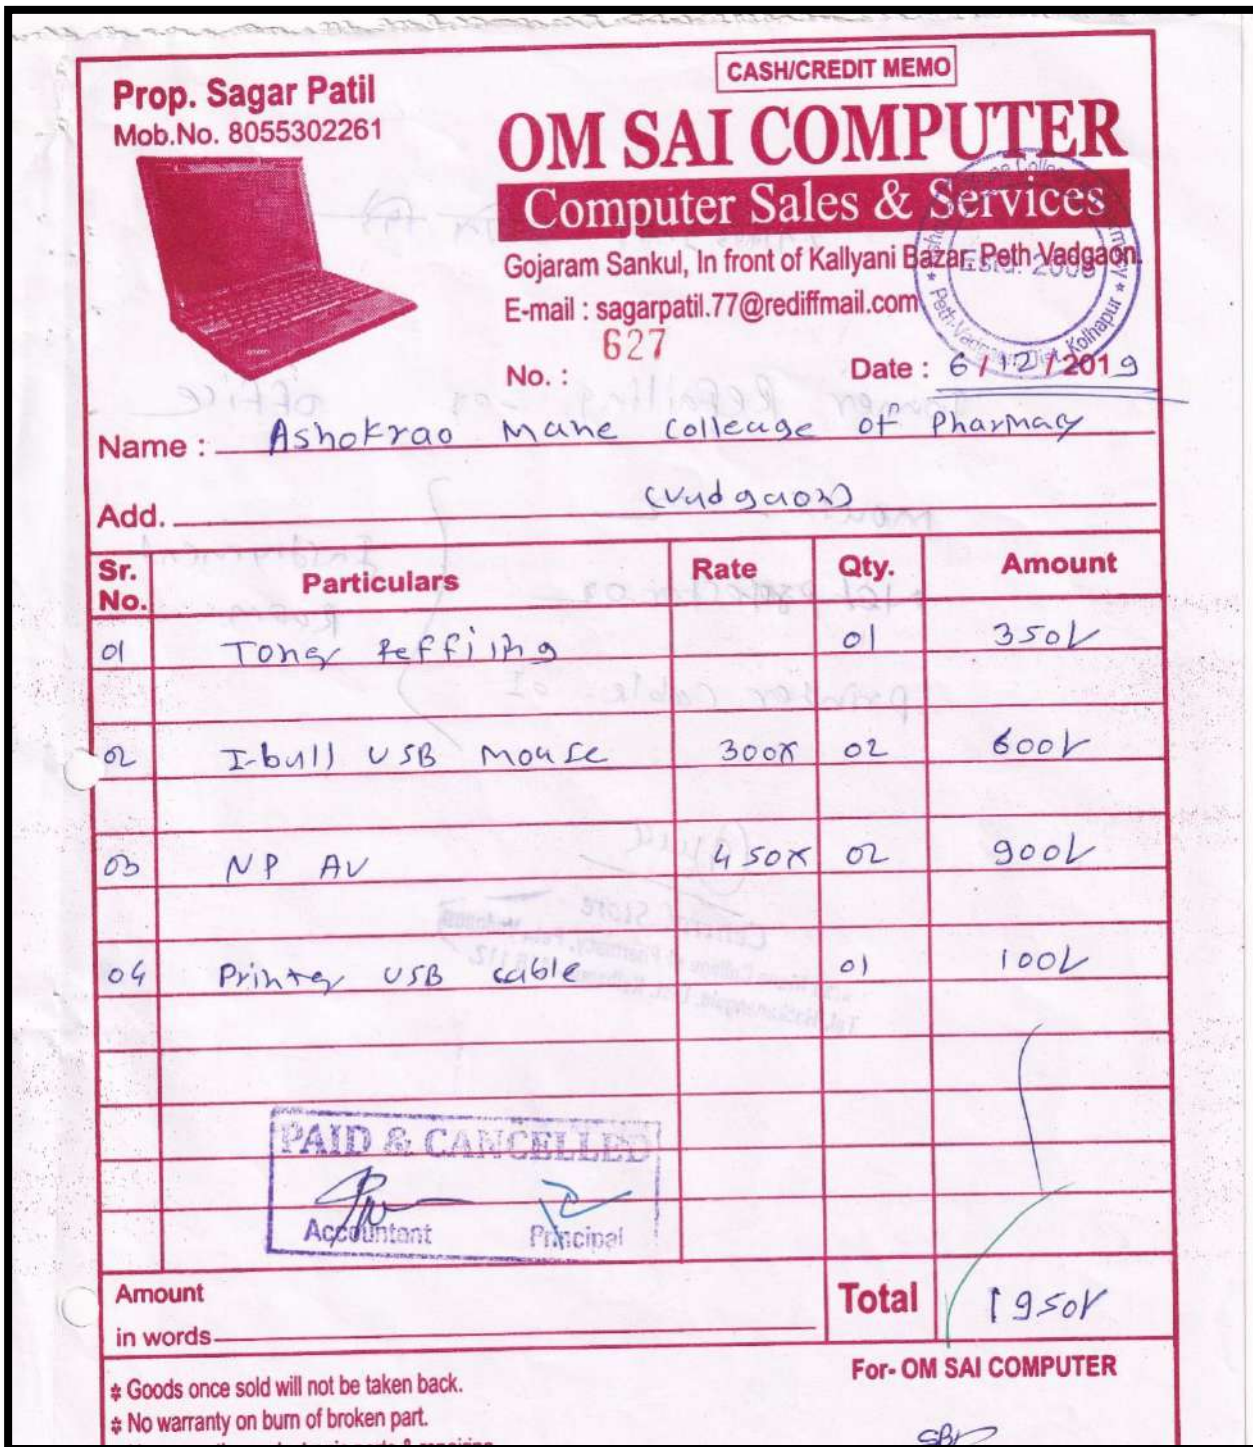 CASH/CREDIT MEMO
Prop. Sagar Patil
Mob.No. 8055302261
OM SAI COMPUTER
Computer Sales & Services
Gojaram Sankul, In front of Kallyani Bazar, Peth Vadgaon.
E-mail : sagarpatil.77@rediffmail.com
Estd. 2009
* Peth-Vadgaon, Dist. Kolhapur *
No. : 627
Date : 6/12/2019
Name : Ashokrao Mane Colleage of Pharmacy
Add. (Vadgaon)
Sr. No. Particulars Rate Qty. Amount
01 Toner Reffiing 01 350/-
02 I-bull USB Mouse 300x 02 600/-
03 NP AV 450x 02 900/-
04 Printer USB cable 01 100/-
PAID & CANCELLED
Accountant Principal
Amount
in words
Total 1950/-
For- OM SAI COMPUTER
* Goods once sold will not be taken back.
* No warranty on burn of broken part.